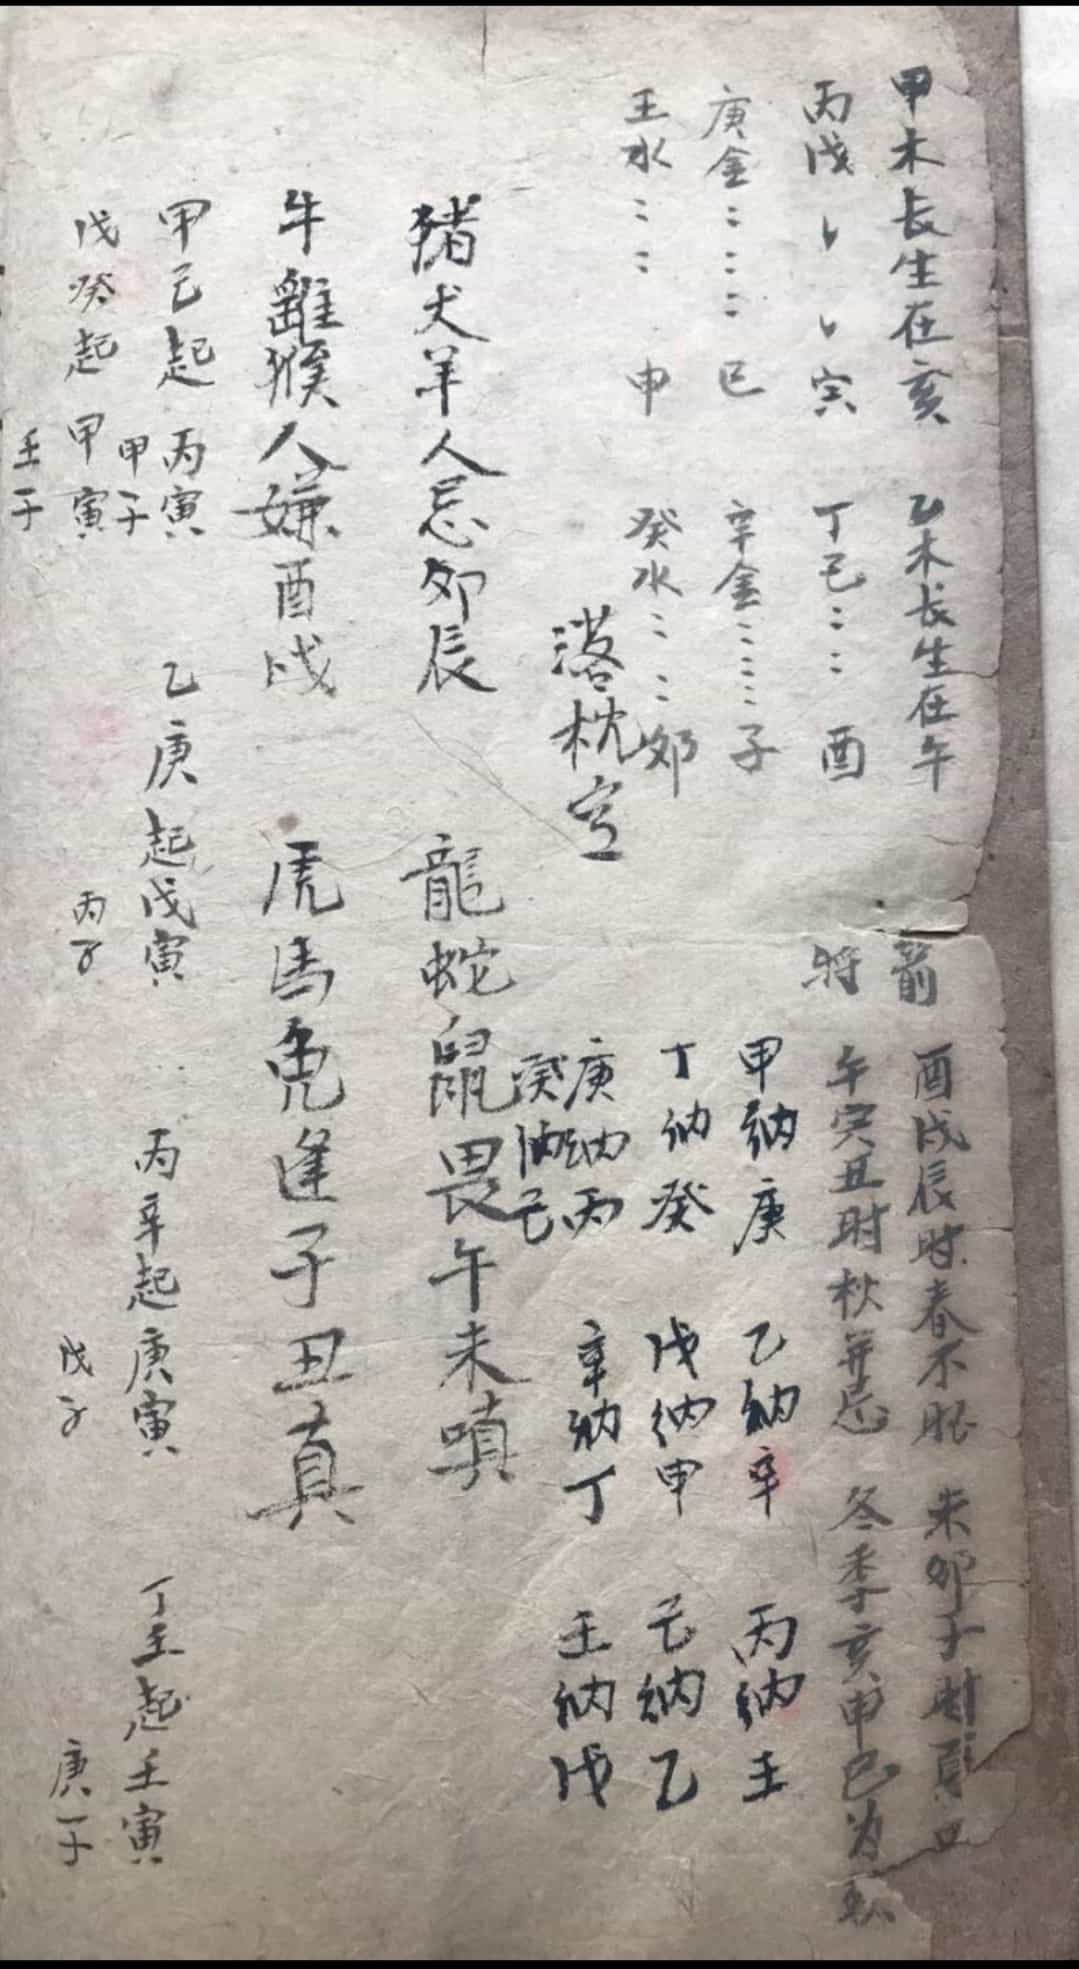 甲木长生在亥
乙木长生在午
丙戊〻〻寅
丁己〻〻酉
庚金〻〻〻巳
辛金〻〻〻子
壬水〻〻申
癸水〻〻卯
箭
将
酉戌辰时春不
未卯子时夏
午寅丑时秋并忌
冬季亥申巳为
甲纳庚
乙纳辛
丙纳壬
丁纳癸
戊纳甲
己纳乙
庚纳丙
辛纳丁
壬纳戊
癸纳己
落枕空
豬犬羊人忌卯辰
龍蛇鼠畏午未嗔
牛雞猴人嫌酉戌
虎馬兎逢子丑真
甲己起丙寅
甲子
乙庚起戊寅
丙子
丙辛起庚寅
戊子
丁壬起壬寅
庚子
戊癸起甲寅
壬子